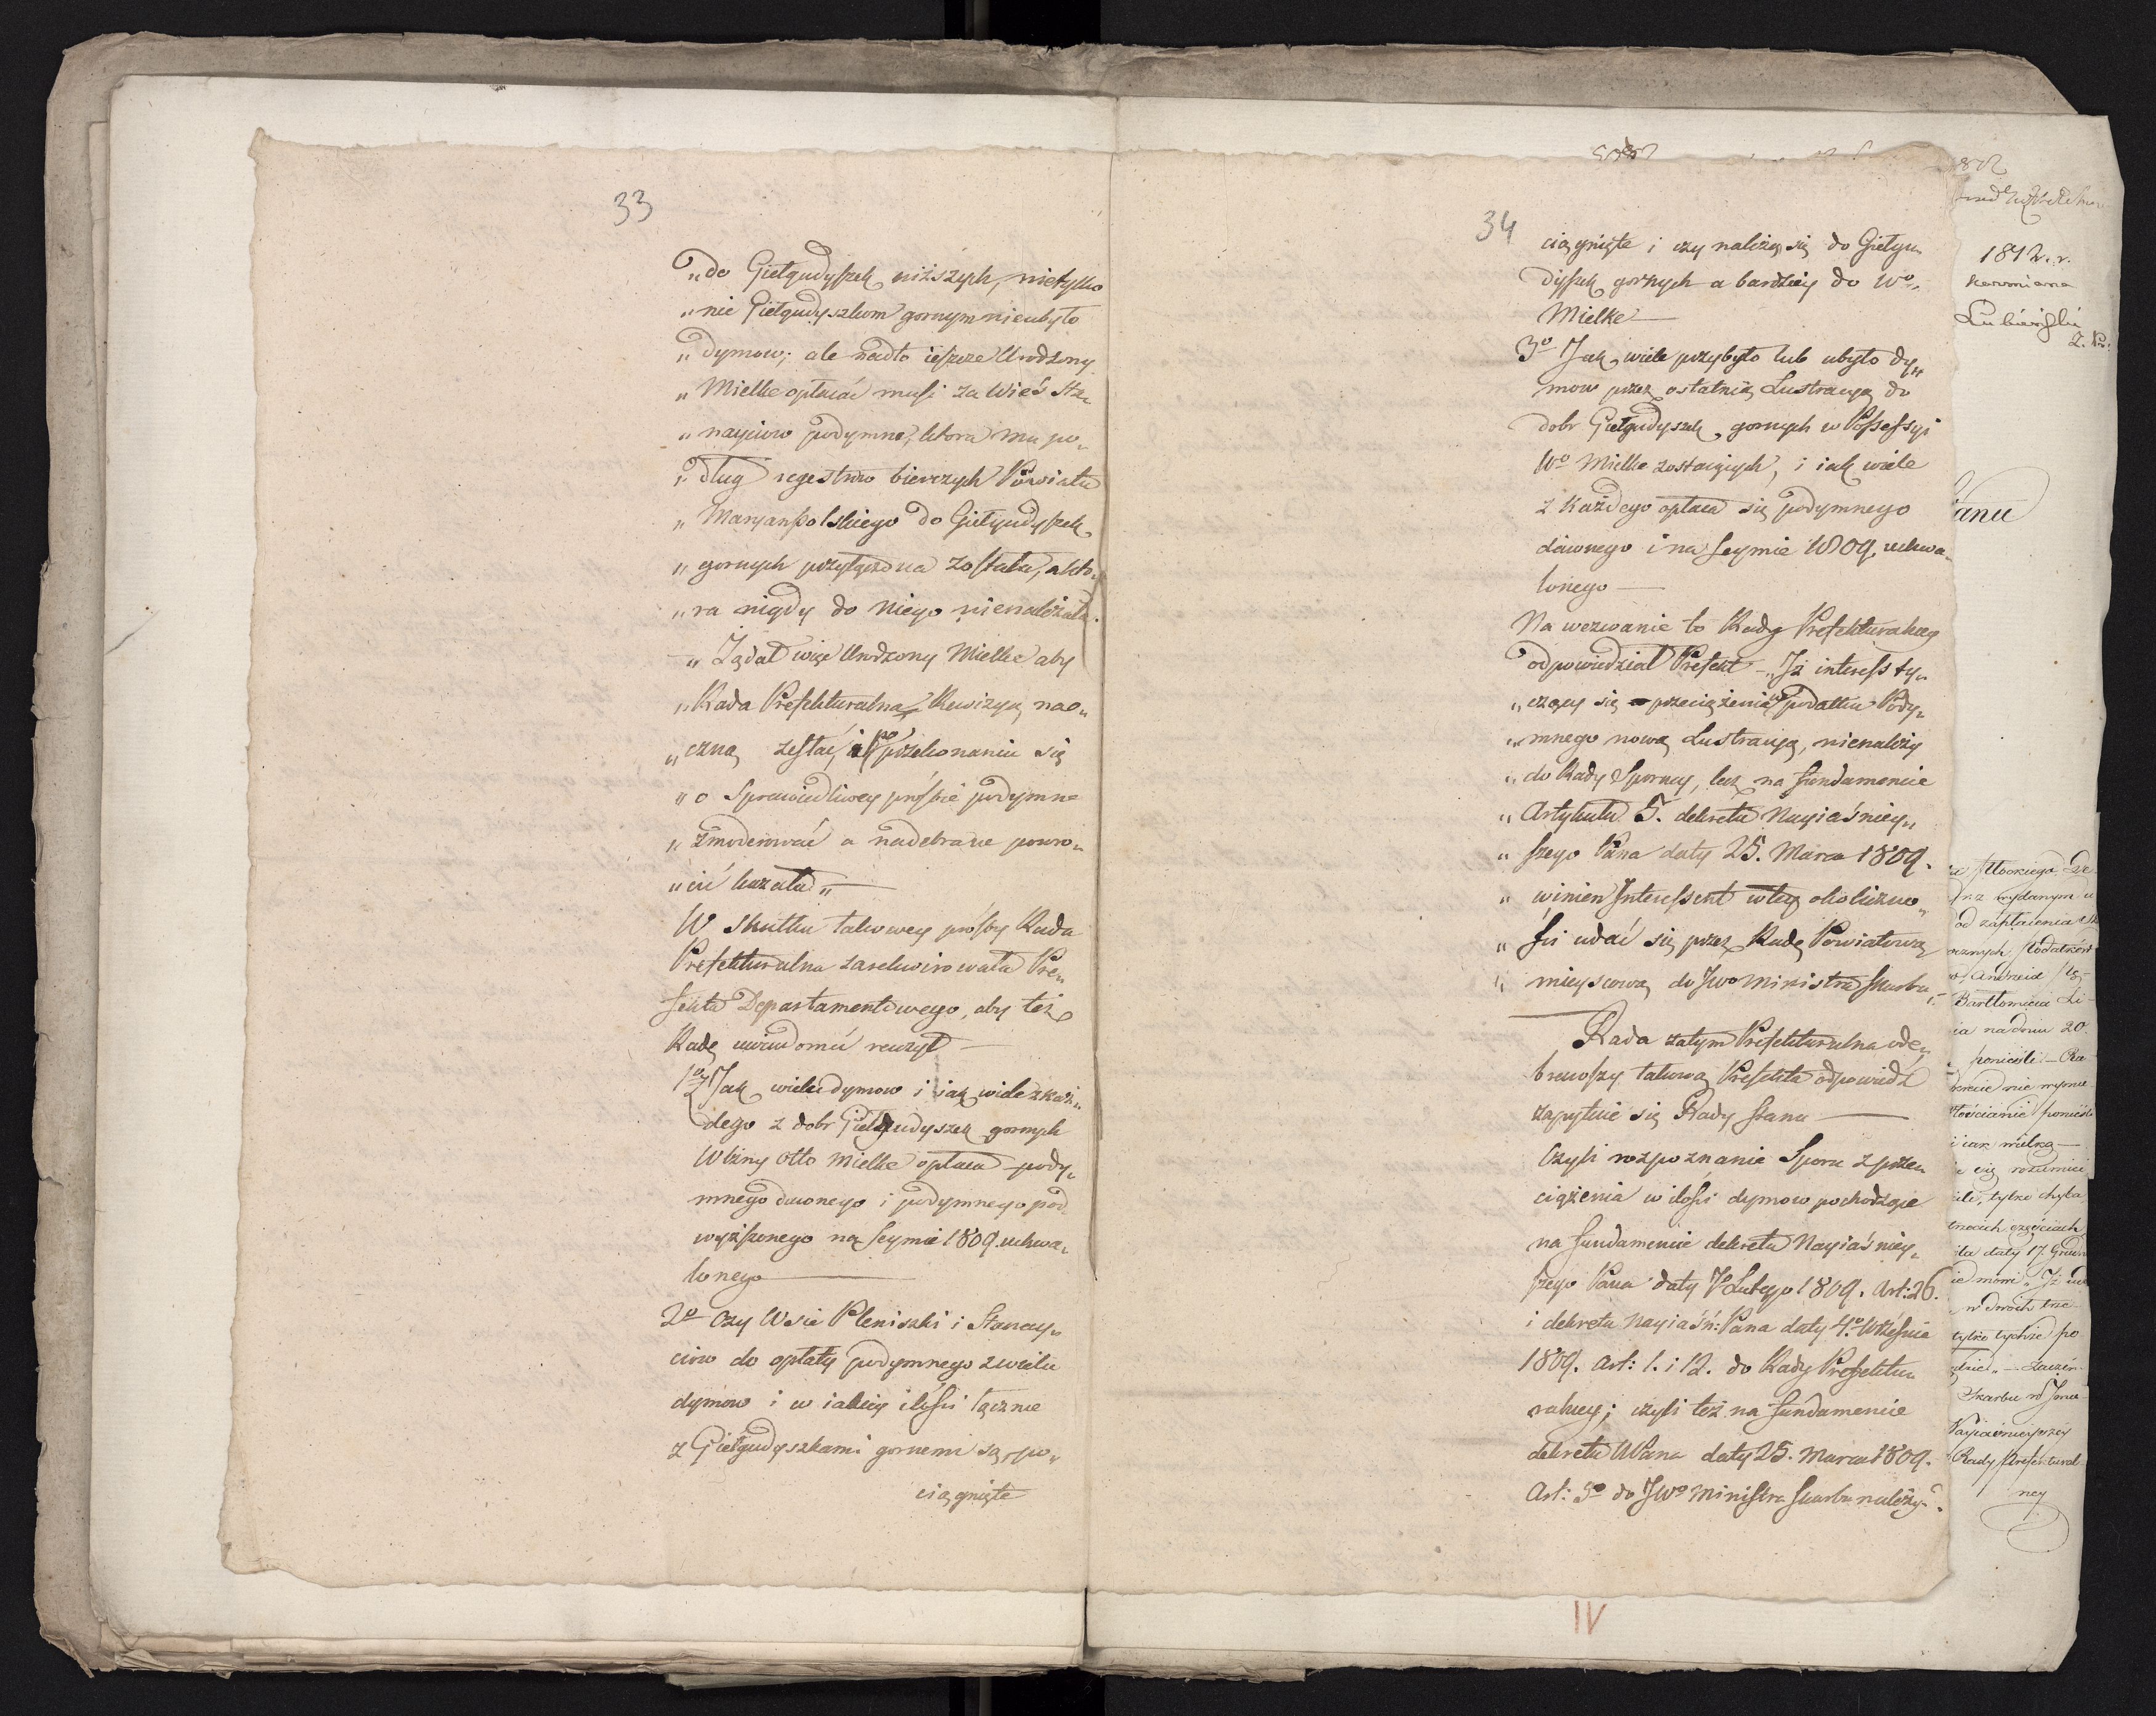 33
„do Giełgudyszek niższych, nietylko
„nie Giełgudyszkom gornym nieubyło
„dymow; ale nadto ieszcze Urodzony
„Mielke opłacać musi za Wieś Sta„
„nayciow podymne, ktora mu po„
„dług regestrow bierczych Powiatu
„Maryanpolskiego do Giełgudyszek
„gornych przyłączona została, a kto„
„ra nigdy do niego nienależała.
„Żądał więc Urodzony Mielke aby
„Rada Prefekturalna Rewizyą nao„
„czną zesłać, i po przekonaniu się
„o Sprawiedliwey prośbie podymne
„zmoderować a nadebrane powro„
„cić kazała„
W skutku takowey prośby Rada
Prefekturalna zarekwirowała Pre„
fekta Departamentowego, aby też
Radę uwiadomić raczył
1o Jak wiele dymow i iak wiele z każ„
dego z dobr Giełgudyszek gornych
Wżny Otto Mielke opłaca pody„
mnego dawnego i podymnego pod„
wyższonego na Seymie 1809. uchwa„
lonego
2o Czy Wsie Pleniszki i Stanay„
ciow do opłaty podymnego z wielu
dymow i w iakiey ilości łącznie
z Giełgudyszkami gornemi są po„
ciągnięte
34
ciągnięte i czy należą się do Giełgu„
dyszek gornych a bardziey do Wo„
Mielke
3o Jak wiele przybyło lub ubyło dy„
mow przez ostatnią Lustracyą do
dobr Giełgudyszek gornych w Possessyi
Wo Mielke zostaiących, i iak wiele
z każdego opłaca się podymnego
dawnego i na Seymie 1809. uchwa„
lonego
Na wezwanie to Rady Prefekturalney
odpowiedział Prefekt – „Iż interess ty„
„czący się przeciążenia podatku Pody„
„mnego nową Lustracyą, nienależy
„do Rady Sporney, lecz na fundamencie
„Artykułu 5. dekretu Nayiaśniey„
„szego Pana daty 25. Marca 1809.
„winien Interessent w tey okoliczno„
„ści udać się przez Radę Powiatową
„mieyscową do JWo Ministra Skarbu„
Rada zatym Prefekturalna ode„
brawszy takową Prefekta odpowiedź
zapytuie się Rady Stanu
Czyli rozpoznanie Sporu z prze„
ciążenia w ilości dymow pochodzące
na fundamencie dekretu Nayiaśniey„
szego Pana daty 7o Lutego 1809. Art: 26.
i dekretu Nayiaśn: Pana daty 4o Września
1809. Art: 1. i 12. do Rady Prefektu„
ralney; czyli też na fundamencie
dekretu Pana daty 25. Marca 1809.
Art: 5o do JWo Ministra Skarbu należy?.
IV
1812. r.
Lubieński
anu
od zapłacenia
Bartłomieia Li-
ia na dniu 20.
i iak wielką
ie się rozumieć
tylko chyba
trzecich częściach
daty 17. Grudn
ie mowi „Iż
w dwoch trze
tylko tychże po
Skarbu
Nayiaśnieyszey
Rady Prefektural
ney